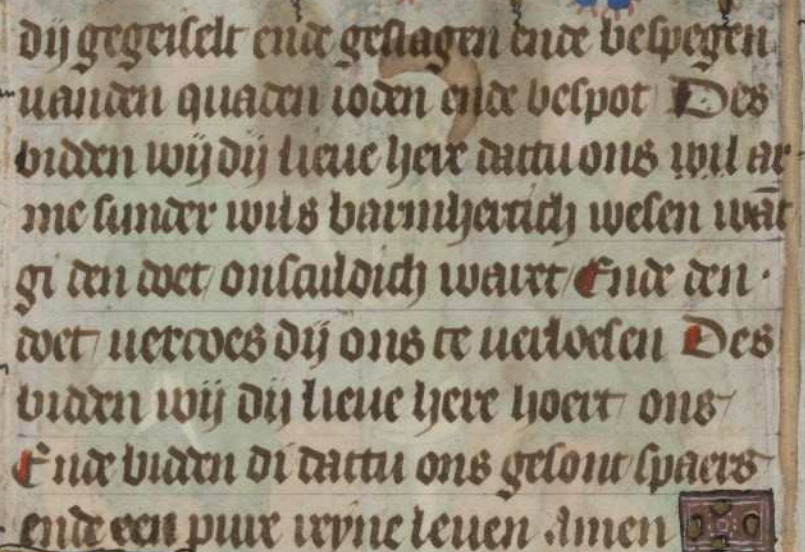 dij gegeiselt ende geslagen ende bespegen
vanden quaden ioden ende bespot Des
bidden wij dij lieue here dattu ons wil ar
me sunder wils barmhertich wesen wāt
gi den doet onsculdich waert Ende den
doet vercoes dij ons te verloesen Des
bidden wij dij lieue here hoert ons
Ende bidden di dattu ons gesont spaers
ende een puer reyne leuen Amen